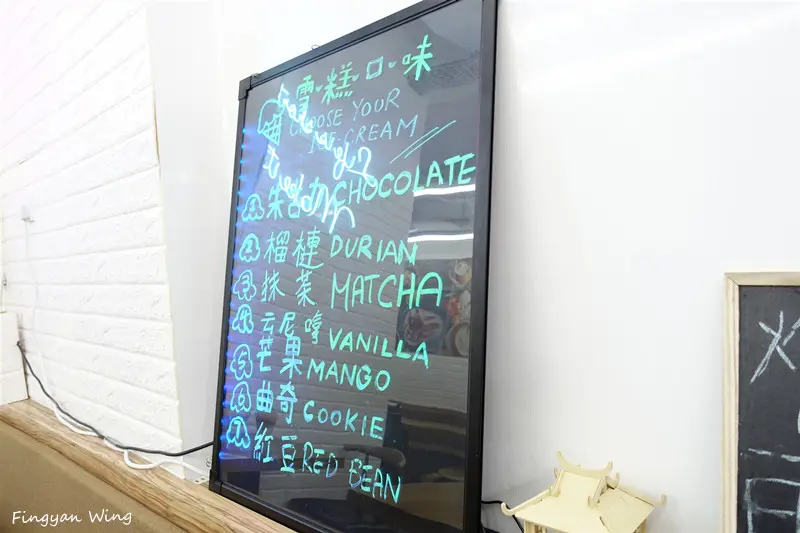 雪糕口味
CHOOSE YOUR
ICE-CREAM
1 朱古力 CHOCOLATE
2 榴槤 DURIAN
3 抹茶 MATCHA
4 云尼嗱 VANILLA
5 芒果 MANGO
6 曲奇 COOKIE
7 紅豆 RED BEAN
Fingyan Wing